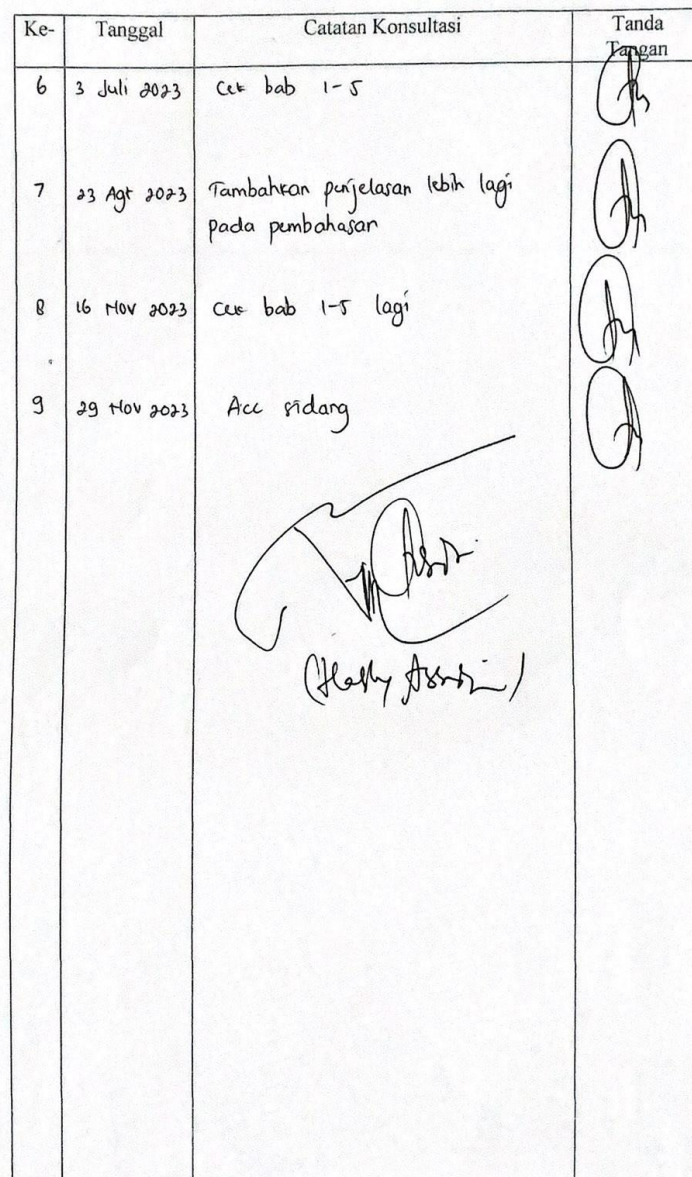 Ke- Tanggal Catatan Konsultasi Tanda
Tangan
6 3 Juli 2023 Cek bab 1-5
7 23 Agt 2023 Tambahkan penjelasan lebih lagi
pada pembahasan
8 16 Nov 2023 Cek bab 1-5 lagi
9 29 Nov 2023 Acc sidang